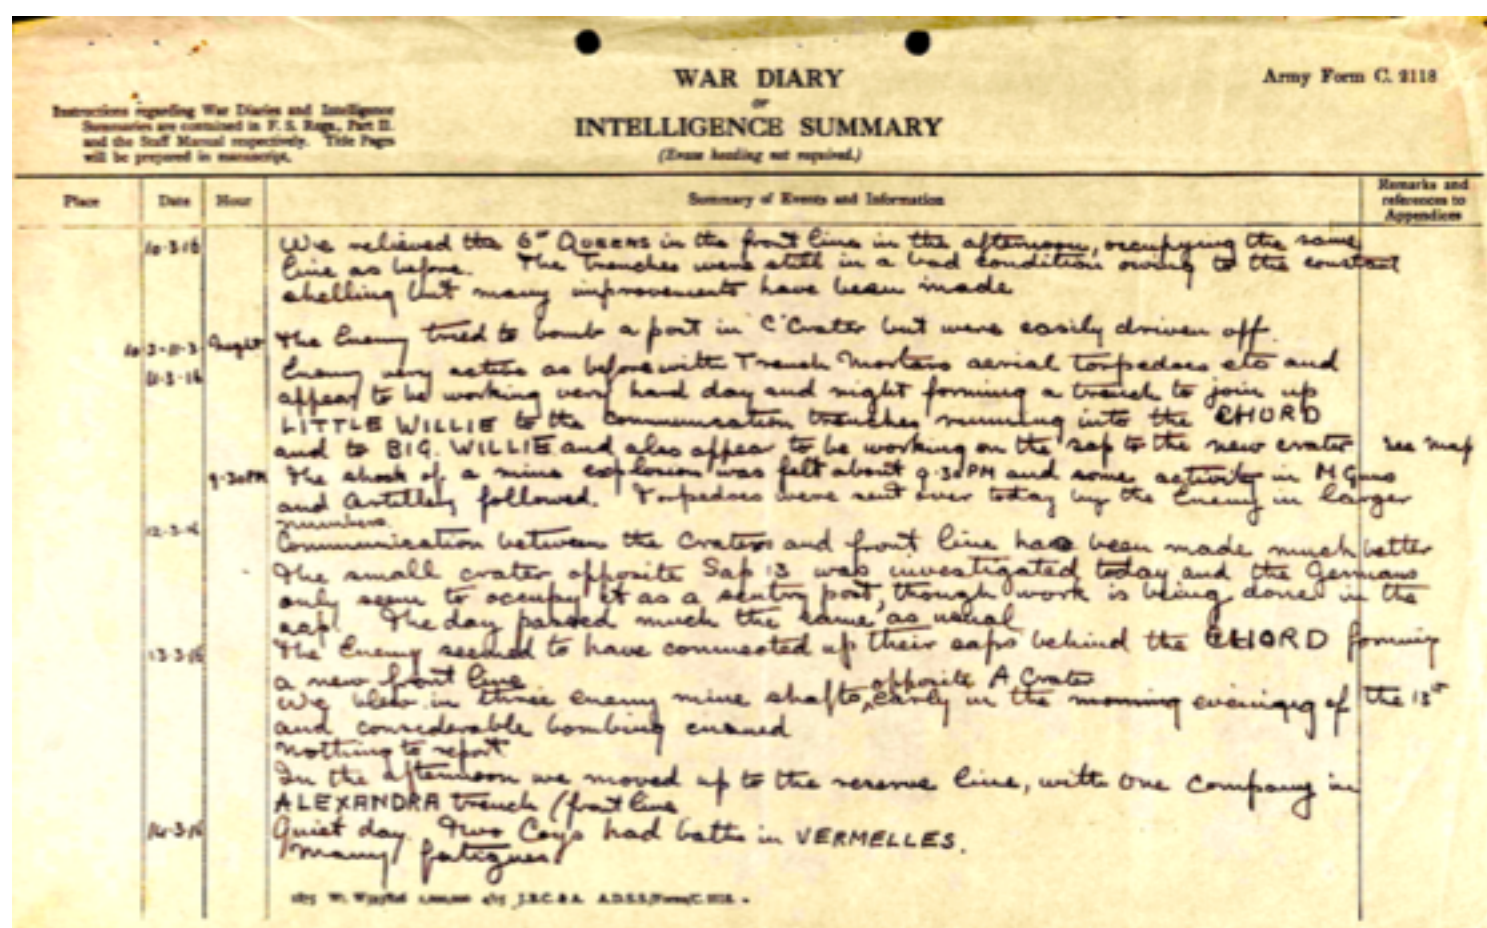 WAR DIARY
Army Form C. 2118
or
INTELLIGENCE SUMMARY
(Erase heading not required.)
Instructions regarding War Diaries and Intelligence
Summaries are contained in F. S. Regs., Part II.
and the Staff Manual respectively. Title Pages
will be prepared in manuscript.
Place Date Hour Summary of Events and Information Remarks and references to Appendices
10-3-16 We relieved the 6th QUEENS in the front line in the afternoon, occupying the same
line as before. The trenches were still in a bad condition owing to the constant
shelling but many improvements have been made
night The Enemy tried to bomb a post in "C" Crater but were easily driven off.
11-3-16 Enemy very active as before with Trench Mortars aerial torpedoes etc and
appear to be working very hard day and night forming a trench to join up
LITTLE WILLIE to the Communication trenches running into the CHORD
and to BIG. WILLIE and also appear to be working on the sap to the new crater see map
9.30PM The shock of a mine explosion was felt about 9.30PM and some activity in M.Guns
and Artillery followed. Torpedoes were sent over today by the Enemy in larger
numbers.
12-3-16 Communication between the Craters and front line has been made much better
The small crater opposite Sap 13 was investigated today and the Germans
only seem to occupy it as a sentry post, though work is being done in the
sap. The day passed much the same as usual
13-3-16 The Enemy seemed to have connected up their saps behind the CHORD forming
a new front line
opposite A Crater
We blew in three enemy mine shafts, early in the morning evening of the 13th
and considerable bombing ensued
nothing to report
In the afternoon we moved up to the reserve line, with one company in
ALEXANDRA trench (front line
14-3-16 Quiet day. Two Coys had baths in VERMELLES.
Many fatigues.
J.B.C. & A. A.D.S.S./Forms/C. 2118.